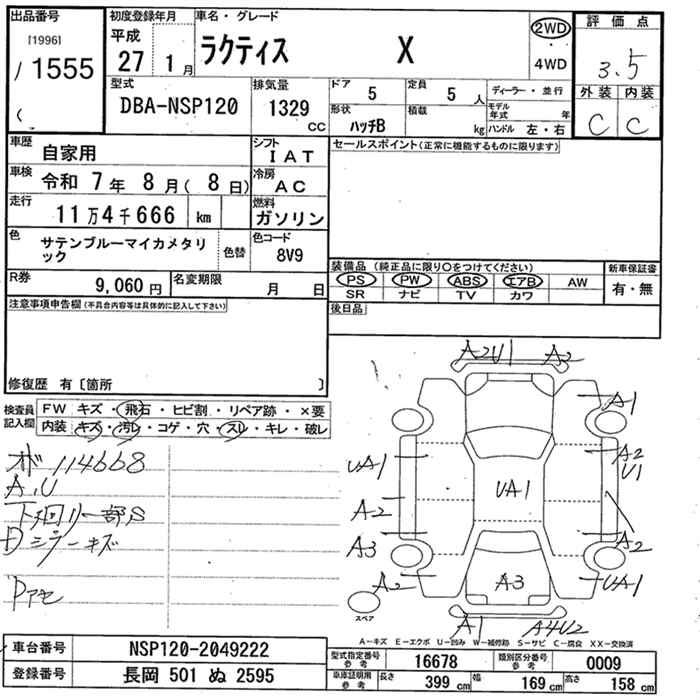 出品番号
[1996]
1555
初度登録年月
平成
27 1月
車名・グレード
ラクティス X
2WD
4WD
評価点
3.5
外装 内装
C C
型式
DBA-NSP120
排気量
1329
CC
ドア
5
定員
5人
形状
ハッチB
積載
kg
ディーラー・並行
モデル年式 年
ハンドル 左・右
車歴 自家用
シフト IAT
車検 令和 7年 8月( 8日)
冷房 AC
走行 11万4千666 km
燃料 ガソリン
色 サテンブルーマイカメタリック
色替
色コード 8V9
R券 9,060円
名変期限 月 日
セールスポイント(正常に機能するものに限ります)
装備品 (純正品に限り○をつけてください)
PS PW ABS エアB AW
SR ナビ TV カワ
新車保証書
有・無
後日品
注意事項申告欄(不具合内容等は具体的に記入して下さい)
修復歴 有〔箇所 〕
検査員記入欄
FW キズ・飛石・ヒビ割・リペア跡・×要
内装 キズ・汚レ・コゲ・穴・スレ・キレ・破レ
オド 114668
A,U
下廻リ一部S
Dミラーキズ
Pアセ
A2U1 A2
A1
UA1
A2
U1
UA1
A2
A3
A2
A2
A3
UA1
スペア
A1 A4U2
A-キズ E-エクボ U-凹み W-補修跡 S-サビ C-腐食 XX-交換済
車台番号 NSP120-2049222
登録番号 長岡 501 ぬ 2595
型式指定番号 参考 16678
類別区分番号 参考 0009
車庫証明用 参考
長さ 399 cm
幅 169 cm
高さ 158 cm